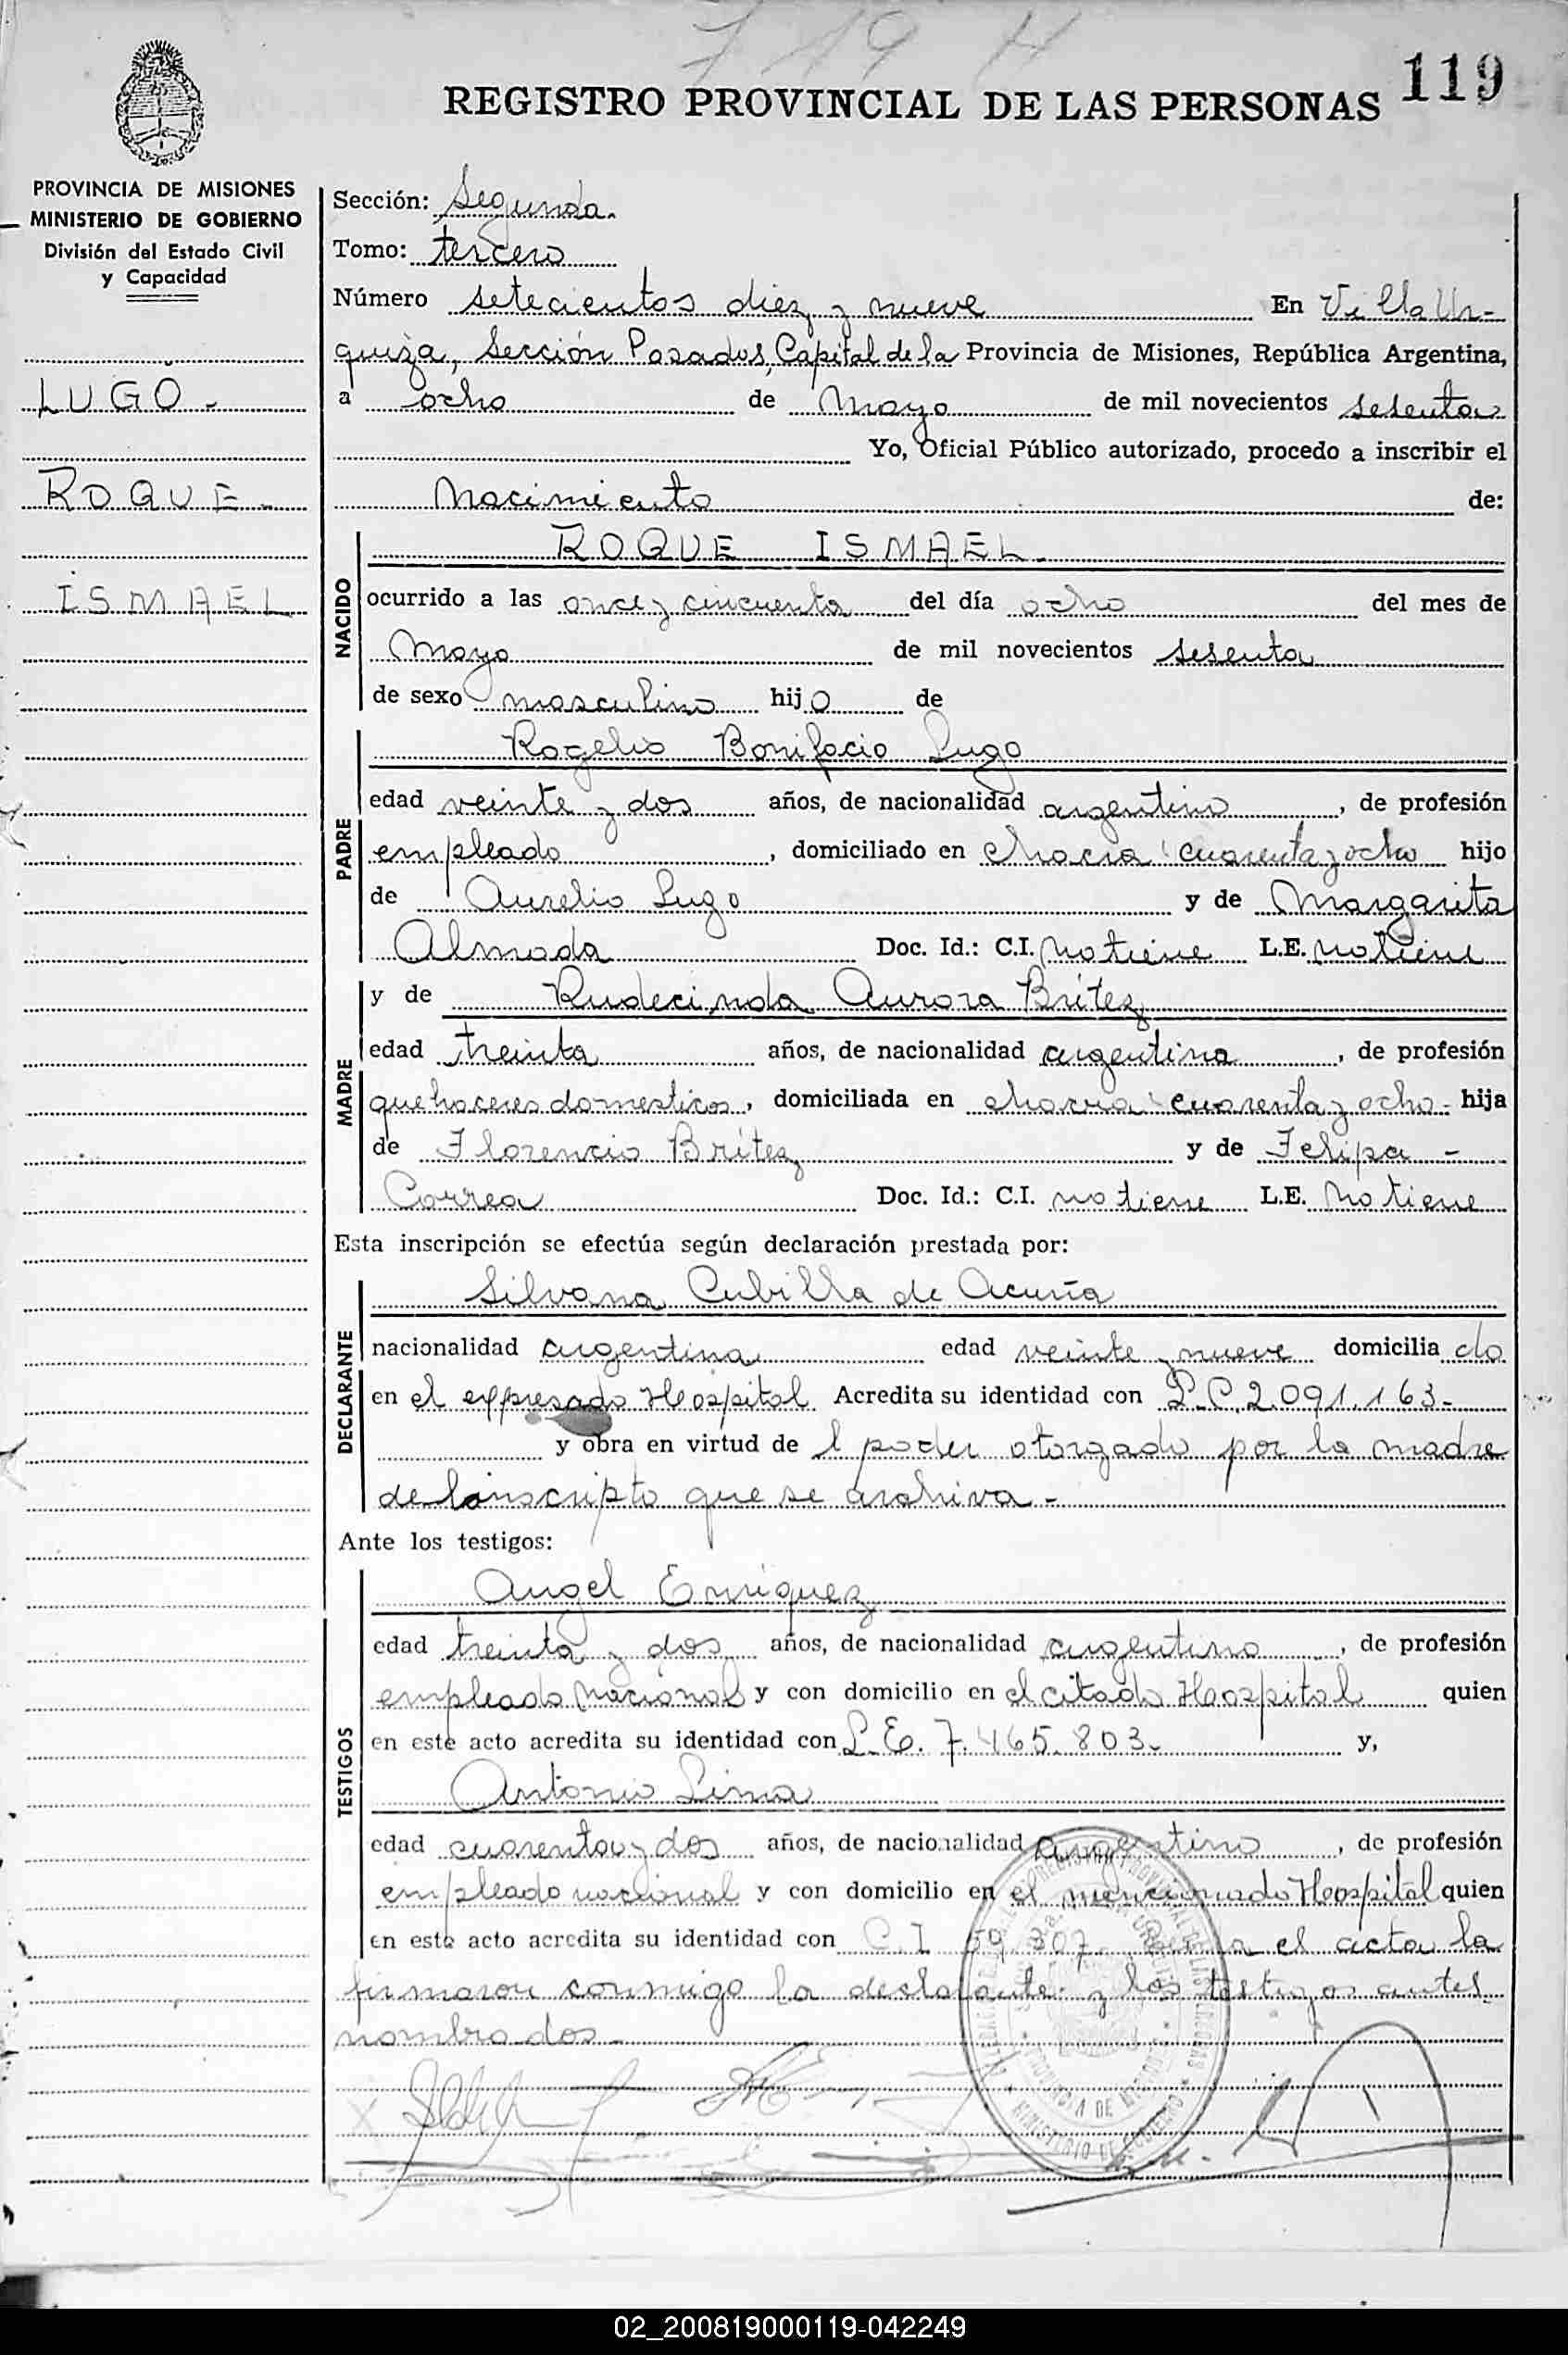 719 H
119
REGISTRO PROVINCIAL DE LAS PERSONAS
PROVINCIA DE MISIONES
MINISTERIO DE GOBIERNO
División del Estado Civil
y Capacidad
LUGO -
ROQUE -
ISMAEL
Sección: Segunda.
Tomo: tercero
Número setecientos diez y nueve En Villa Ur-
quiza, Sección Posadas, Capital de la Provincia de Misiones, República Argentina,
a ocho de Mayo de mil novecientos sesenta
Yo, Oficial Público autorizado, procedo a inscribir el
Nacimiento de:
NACIDO
ROQUE ISMAEL
ocurrido a las once y cincuenta del día ocho del mes de
Mayo de mil novecientos sesenta
de sexo masculino hijo de
PADRE
Rogelio Bonifacio Lugo
edad veinte y dos años, de nacionalidad argentino, de profesión
empleado, domiciliado en chacra cuarenta y ocho hijo
de Aurelio Lugo y de Margarita
Almada Doc. Id.: C.I. No tiene L.E. no tiene
MADRE
y de Rudecinda Aurora Brítez
edad treinta años, de nacionalidad argentina, de profesión
quehaceres domesticos, domiciliada en chacra cuarenta y ocho - hija
de Florencio Brítez y de Felipa -
Correa Doc. Id.: C.I. no tiene L.E. No tiene
Esta inscripción se efectúa según declaración prestada por:
DECLARANTE
Silvana Cubilla de Acuña
nacionalidad argentina edad veinte y nueve domicilia do
en el expresado Hospital Acredita su identidad con L.C. 2.091.163-
y obra en virtud de l poder otorgado por la madre
del inscripto que se archiva -
Ante los testigos:
TESTIGOS
Angel Enriquez
edad treinta y dos años, de nacionalidad argentino, de profesión
empleado nacional y con domicilio en el citado Hospital quien
en este acto acredita su identidad con L.E. 7.465.803- y,
Antonio Lima
edad cuarenta y dos años, de nacionalidad argentino, de profesión
empleado nacional y con domicilio en el mencionado Hospital quien
en este acto acredita su identidad con C.I 59.307 el acta la
firmaron conmigo la declarante y los testigos antes
nombrados -
MINISTERIO DE GOBIERNO
02_200819000119-042249